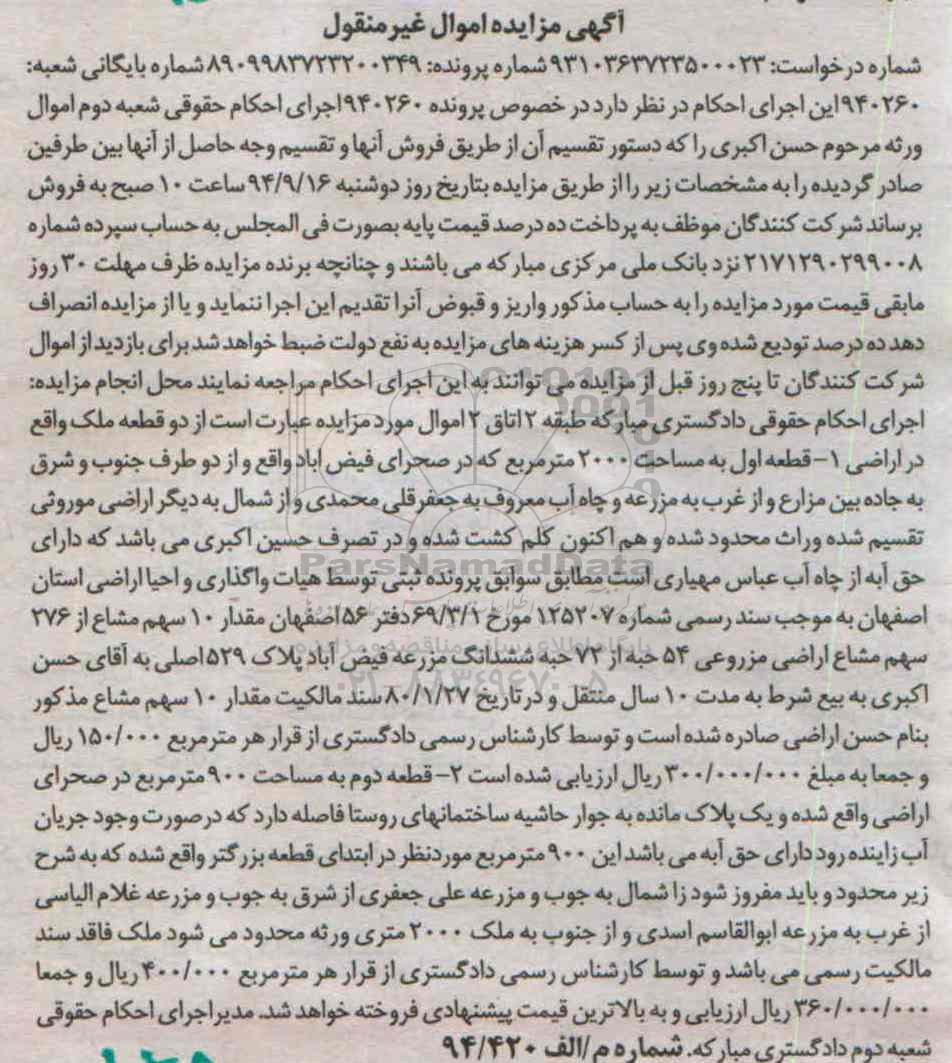 آگهی مزایده اموال غیرمنقول
شماره درخواست: ۹۳۱۰۳۶۳۷۲۳۵۰۰۰۲۳ شماره پرونده: ۸۹۰۹۹۸۳۷۲۳۲۰۰۳۴۹ شماره بایگانی شعبه:
۹۴۰۲۶۰ این اجرای احکام در نظر دارد در خصوص پرونده ۹۴۰۲۶۰ اجرای احکام حقوقی شعبه دوم اموال
ورثه مرحوم حسن اکبری را که دستور تقسیم آن از طریق فروش آنها و تقسیم وجه حاصل از آنها بین طرفین
صادر گردیده را به مشخصات زیر را از طریق مزایده بتاریخ روز دوشنبه ۹۴/۹/۱۶ ساعت ۱۰ صبح به فروش
برساند شرکت کنندگان موظف به پرداخت ده درصد قیمت پایه بصورت فی المجلس به حساب سپرده شماره
۲۱۷۱۲۹۰۲۹۹۰۰۸ نزد بانک ملی مرکزی مبارکه می باشند و چنانچه برنده مزایده ظرف مهلت ۳۰ روز
مابقی قیمت مورد مزایده را به حساب مذکور واریز و قبوض آنرا تقدیم این اجرا ننماید و یا از مزایده انصراف
دهد ده درصد تودیع شده وی پس از کسر هزینه های مزایده به نفع دولت ضبط خواهد شد برای بازدید از اموال
شرکت کنندگان تا پنج روز قبل از مزایده می توانند به این اجرای احکام مراجعه نمایند محل انجام مزایده:
اجرای احکام حقوقی دادگستری مبارکه طبقه ۲ اتاق ۲ اموال مورد مزایده عبارت است از دو قطعه ملک واقع
در اراضی ۱- قطعه اول به مساحت ۲۰۰۰ مترمربع که در صحرای فیض اباد واقع و از دو طرف جنوب و شرق
به جاده بین مزارع و از غرب به مزرعه و چاه آب معروف به جعفرقلی محمدی و از شمال به دیگر اراضی موروثی
تقسیم شده وراث محدود شده و هم اکنون کلم کشت شده و در تصرف حسین اکبری می باشد که دارای
ParsNamadData
حق آبه از چاه آب عباس مهیاری است مطابق سوابق پرونده ثبتی توسط هیات واگذاری و احیا اراضی استان
اصفهان به موجب سند رسمی شماره ۱۲۵۲۰۷ مورخ ۶۹/۳/۱ دفتر ۵۶ اصفهان مقدار ۱۰ سهم مشاع از ۲۷۶
سهم مشاع اراضی مزروعی ۵۴ حبه از ۷۲ حبه ششدانگ مزرعه فیض آباد پلاک ۵۲۹ اصلی به آقای حسن
پایگاه اطلاع رسانی مناقصه و مزایده
۰۲۱-۸۸۳۴۹۶۷۰-۵
اکبری به بیع شرط به مدت ۱۰ سال منتقل و در تاریخ ۸۰/۱/۲۷ سند مالکیت مقدار ۱۰ سهم مشاع مذکور
بنام حسن اراضی صادره شده است و توسط کارشناس رسمی دادگستری از قرار هر مترمربع ۱۵۰/۰۰۰ ریال
و جمعا به مبلغ ۳۰۰/۰۰۰/۰۰۰ ریال ارزیابی شده است ۲- قطعه دوم به مساحت ۹۰۰ مترمربع در صحرای
اراضی واقع شده و یک پلاک مانده به جوار حاشیه ساختمانهای روستا فاصله دارد که درصورت وجود جریان
آب زاینده رود دارای حق آبه می باشد این ۹۰۰ مترمربع موردنظر در ابتدای قطعه بزرگتر واقع شده که به شرح
زیر محدود و باید مفروز شود زا شمال به جوب و مزرعه علی جعفری از شرق به جوب و مزرعه غلام الیاسی
از غرب به مزرعه ابوالقاسم اسدی و از جنوب به ملک ۲۰۰۰ متری ورثه محدود می شود ملک فاقد سند
مالکیت رسمی می باشد و توسط کارشناس رسمی دادگستری از قرار هر مترمربع ۴۰۰/۰۰۰ ریال و جمعا
۳۶۰/۰۰۰/۰۰۰ ریال ارزیابی و به بالاترین قیمت پیشنهادی فروخته خواهد شد. مدیر اجرای احکام حقوقی
شعبه دوم دادگستری مبارکه. شماره م/الف ۹۴/۴۲۰